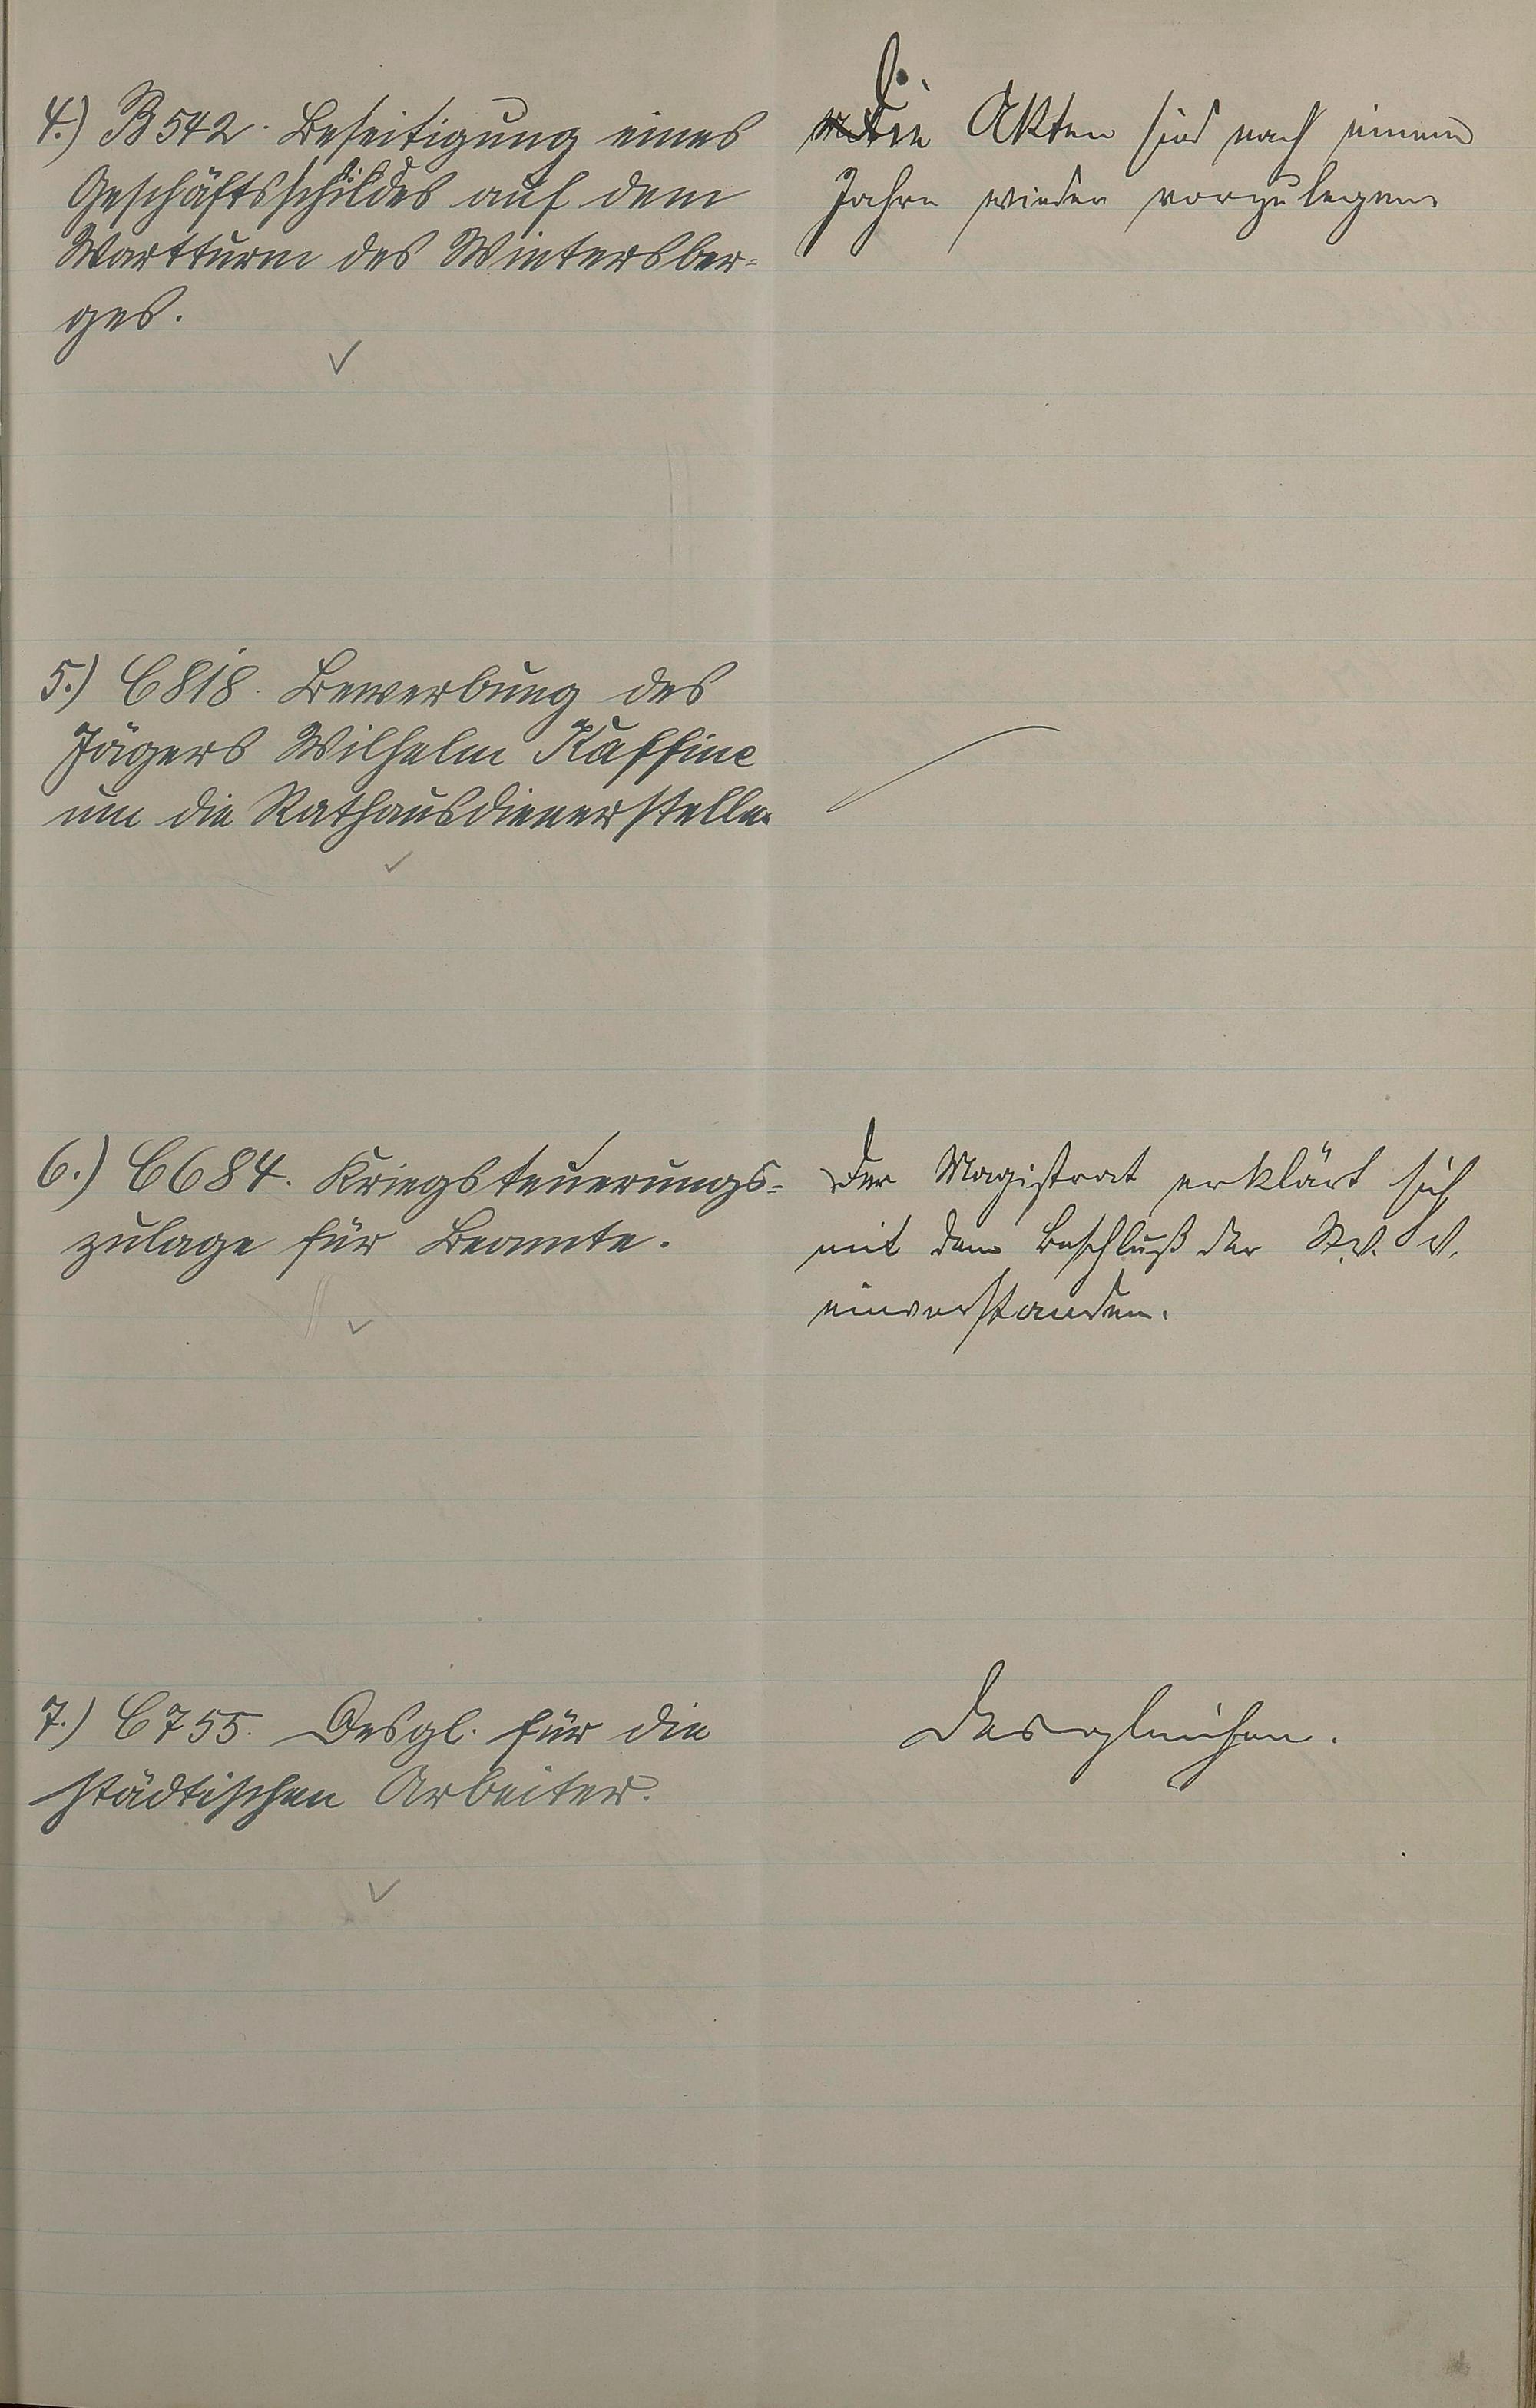 4.) B 542. Beseitigung eines
Geschäftsschildes auf dem
Wartturm des Wintersber=
ges.
Die Akten sind nach einem
Jahre wieder vorzulegen.
5.) C 818. Bewerbung des
Jägers Wilhelm Kaffine
um die Rathausdienerstelle.
6.) C 684. Kriegsteuerungs=
zulage für Beamte.
Der Magistrat erklärt sich
mit dem Beschluß der St. V. V.
einverstanden.
7.) C 755. Desgl. für die
städtischen Arbeiter.
Desgleichen.